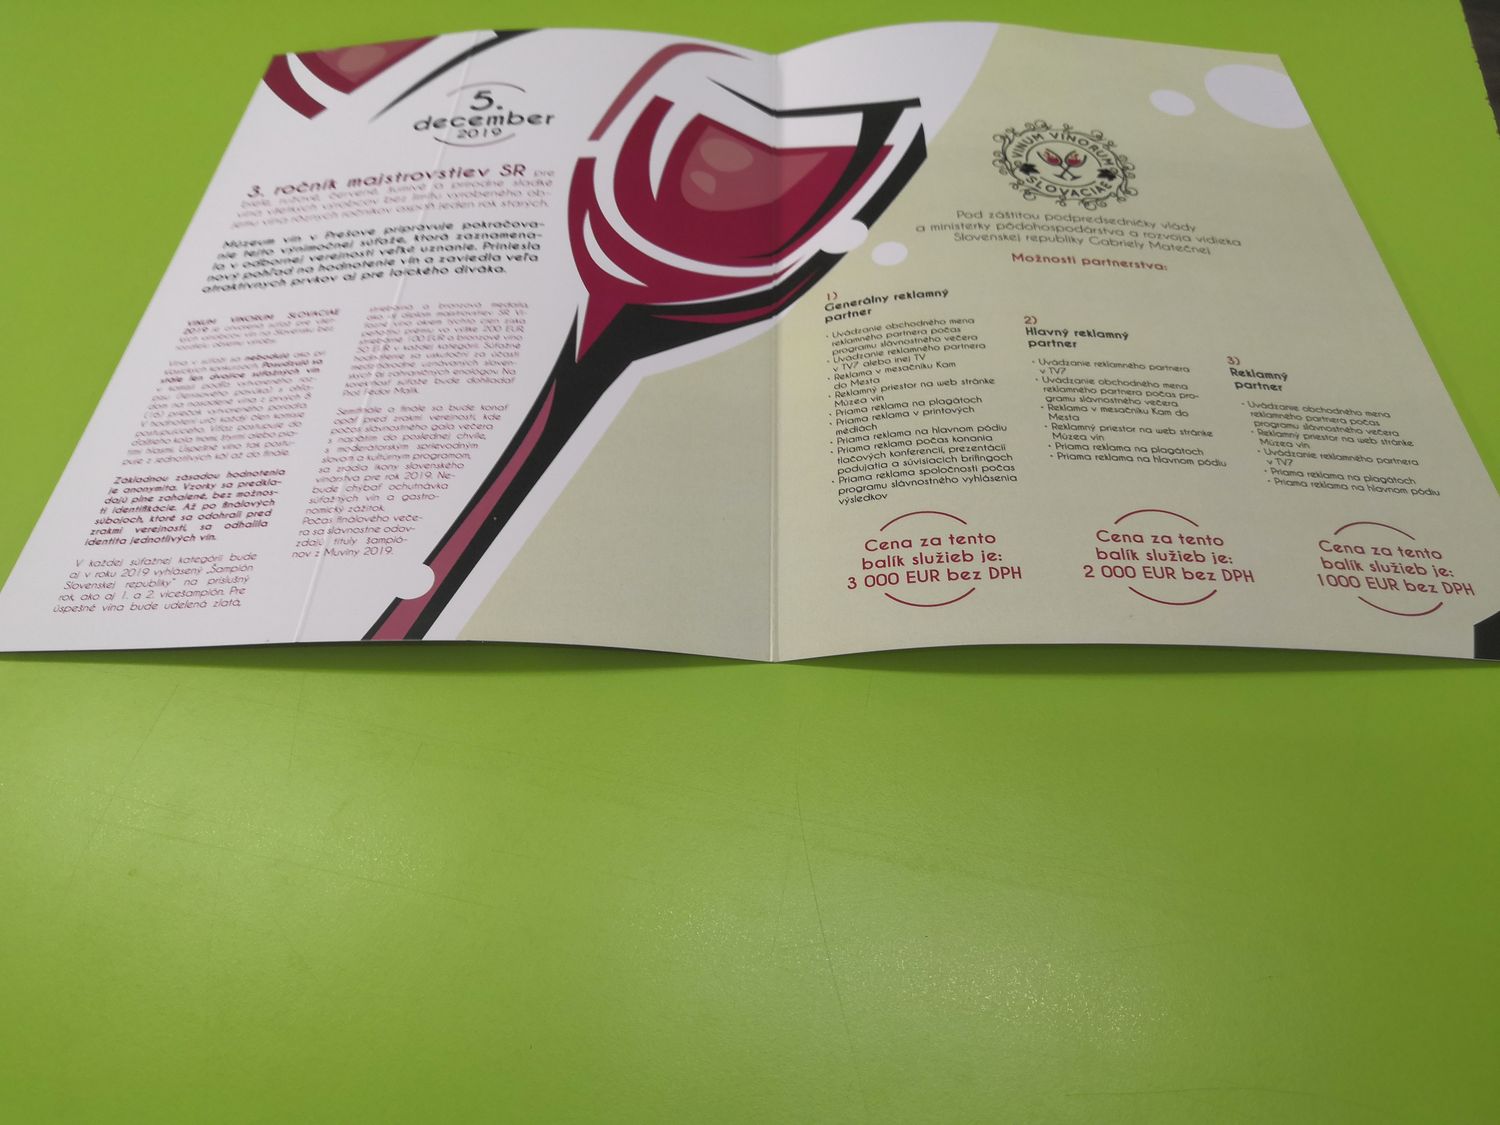 5.
december
2019
3. ročník majstrovstiev SR pre
biele, ružové, červené, šumivé a prírodne sladké
vína všetkých výrobcov bez limitu vyrobeného ob-
jemu vína rôznych ročníkov aspoň jeden rok starých.
Múzeum vín v Prešove pripravuje pokračova-
nie tejto výnimočnej súťaže, ktorá zaznamena-
la v odbornej verejnosti veľké uznanie. Priniesla
nový pohľad na hodnotenie vín a zaviedla veľa
atraktívnych prvkov aj pre laického diváka.
VINUM VINORUM SLOVACIAE
2019 je otvorená súťaž pre všet-
kých výrobcov vín na Slovensku bez
rozdielu objemu výroby.
Vína v súťaži sa nebodujú ako pri
klasických konkurzoch. Posudzujú sa
stále len dvojice súťažných vín
V hodnotení určí každý člen komisie
postupujúceho. Víťaz postupuje do
ďalšieho kola tromi, štyrmi alebo pia-
timi hlasmi. Úspešné vína tak postu-
pujú z jednotlivých kôl až do finále.
Základnou zásadou hodnotenia
je anonymita. Vzorky sa predkla-
dajú plne zahalené, bez možnos-
ti identifikácie. Až po finálových
súbojoch, ktoré sa odohrali pred
zrakmi verejnosti, sa odhalila
identita jednotlivých vín.
V každej súťažnej kategórii bude
aj v roku 2019 vyhlásený „Šampión
Slovenskej republiky“ na príslušný
rok, ako aj 1. a 2. vicešampión. Pre
úspešné vína bude udelená zlatá,
strieborná a bronzová medaila,
ako aj diplom majstrovstiev SR. Ví-
ťazné víno okrem týchto cien získa
peňažnú prémiu vo výške 200 EUR,
strieborné 100 EUR a bronzové víno
50 EUR v každej kategórii. Súťažné
hodnotenie sa uskutoční za účasti
medzinárodne uznávaných sloven-
ských aj zahraničných enológov. Na
korektnosť súťaže bude dohliadať
Prof. Fedor Malík.
Semifinále a finále sa bude konať
opäť pred zrakmi verejnosti, kde
počas slávnostného gala večera
s napätím do poslednej chvíle,
s moderátorským sprievodným
slovom a kultúrnym programom,
sa zrodia ikony slovenského
vinárstva pre rok 2019. Ne-
bude chýbať ochutnávka
súťažných vín a gastro-
nomický zážitok.
Počas finálového veče-
ra sa slávnostne odov-
zdajú tituly šampió-
nov z Muvíny 2019.
VINUM VINORUM
SLOVACIAE
Pod záštitou podpredsedníčky vlády
a ministerky pôdohospodárstva a rozvoja vidieka
Slovenskej republiky Gabriely Matečnej
Možnosti partnerstva:
1)
Generálny reklamný
partner
• Uvádzanie obchodného mena
reklamného partnera počas
programu slávnostného večera
• Uvádzanie reklamného partnera
v TV7 alebo inej TV
• Reklama v mesačníku Kam
do Mesta
• Reklamný priestor na web stránke
Múzea vín
• Priama reklama na plagátoch
• Priama reklama v printových
médiach
• Priama reklama na hlavnom pódiu
• Priama reklama počas konania
tlačových konferencií, prezentácií
podujatia a súvisiacich brífingoch
• Priama reklama spoločnosti počas
programu slávnostného vyhlásenia
výsledkov
Cena za tento
balík služieb je:
3 000 EUR bez DPH
2)
Hlavný reklamný
partner
• Uvádzanie reklamného partnera
v TV7
• Uvádzanie obchodného mena
reklamného partnera počas pro-
gramu slávnostného večera
• Reklama v mesačníku Kam do
Mesta
• Reklamný priestor na web stránke
Múzea vín
• Priama reklama na plagátoch
• Priama reklama na hlavnom pódiu
Cena za tento
balík služieb je:
2 000 EUR bez DPH
3)
Reklamný
partner
• Uvádzanie obchodného mena
reklamného partnera počas
programu slávnostného večera
• Reklamný priestor na web stránke
Múzea vín
• Uvádzanie reklamného partnera
v TV7
• Priama reklama na plagátoch
• Priama reklama na hlavnom pódiu
Cena za tento
balík služieb je:
1000 EUR bez DPH